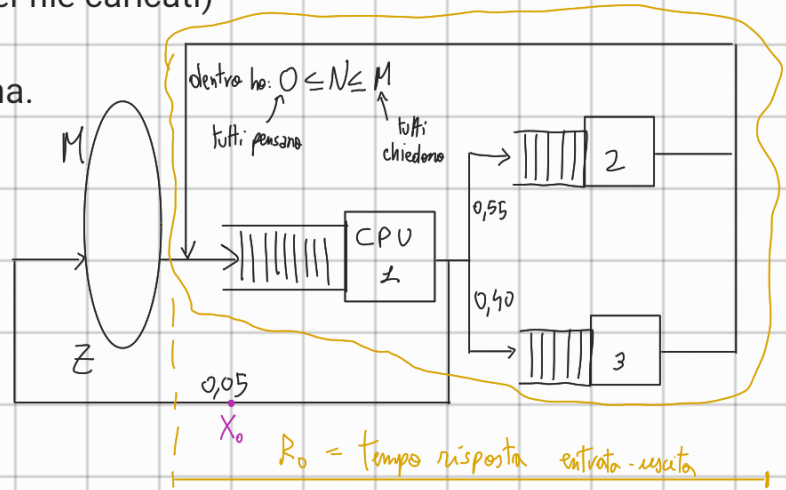 ei file caricati)
na.
dentro ho: 0 ≤ N ≤ M
tutti pensano
tutti
chiedono
M
2
0,55
CPU
1
0,40
3
Z
0,05
X₀
R₀ = tempo risposta entrata-uscita